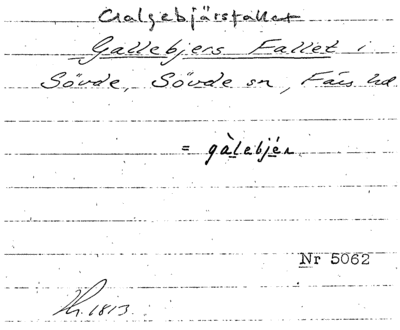 Galgebjärsfallet
Gallebjers Fallet i
Sövde, Sövde sn, Färs hd
= gàlebjér
Nr 5062
1813